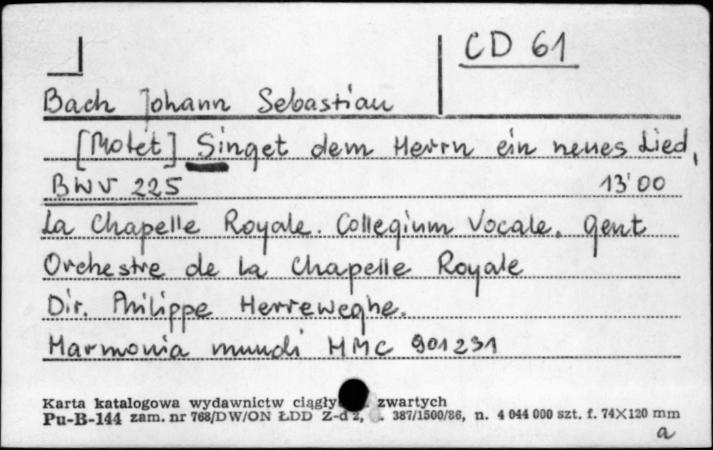 CD 61
Bach Johann Sebastian
[Motet] Singet dem Herrn ein neues Lied,
BWV 225 13'00
La Chapelle Royale. Collegium Vocale. Gent
Orchestre de la Chapelle Royale
Dir. Philippe Herreweghe.
Harmonia mundi HMC 901231
Karta katalogowa wydawnictw ciągły zwartych
Pu-B-144 zam. nr 768/DW/ON ŁDD Z-d 2, 387/1500/86, n. 4 044 000 szt. f. 74×120 mm
a